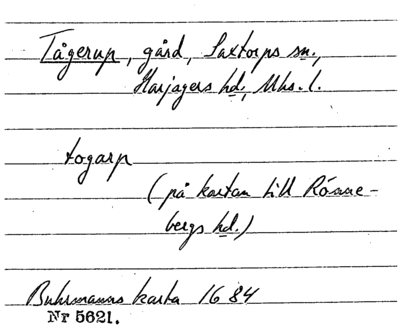 Tågerup, gård, Saxtorps sn.,
Harjagers hd., Mhs. l.
togarp
(på kartan till Rönne-
bergs hd.)
Buhrmanns karta 1684
Nr 5621.